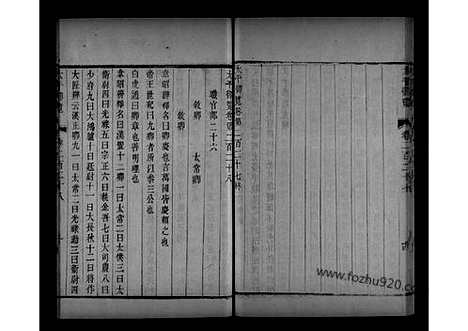 太平御覽卷第二百二十七終
太平御覽卷第二百二十八
職官部二十六
敘卿 太常卿
敘卿
韋昭釋名曰卿慶也言萬國皆慶賴之也
帝王世紀曰九卿者所以參三公也
白虎通曰卿章也善明理也
韋昭辯釋名曰漢置十二卿一曰太常二曰太僕三曰
衛尉四曰光祿五曰宗正六曰執金吾七曰大司農八曰
少府九曰大鴻臚十曰廷尉十一曰大長秋十二曰將作
大匠辨云漢正卿九一曰太常二曰光祿勳三曰衛尉四
www.fozhu920.com